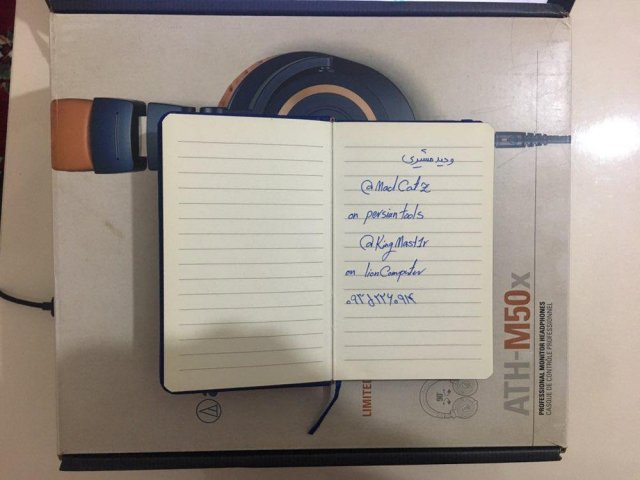 وحید مشیری
@MadCatz
on persiantools
@KingMast1r
on lionComputer
LIMITED
ATH-M50x
PROFESSIONAL MONITOR HEADPHONES
CASQUE DE CONTRÔLE PROFESSIONNEL